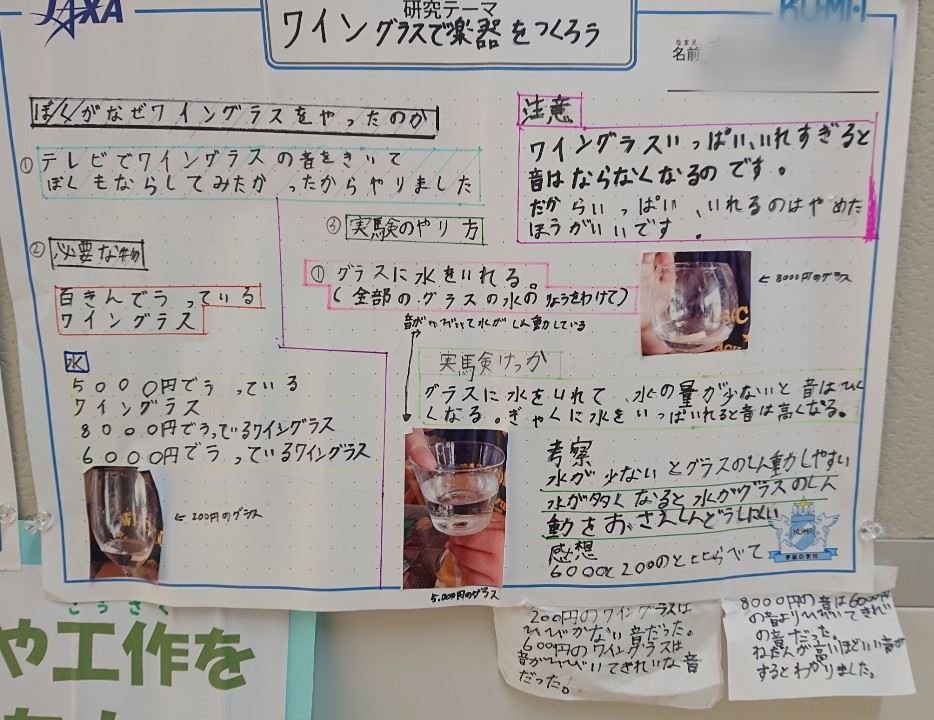 JAXA
研究テーマ
ワイングラスで楽器をつくろう
KUMA
なまえ
名前
ぼくがなぜワイングラスをやったのか
①テレビでワイングラスの音をきいて
ぼくもならしてみたかったからやりました
②必要な物
百きんでうっている
ワイングラス
水
5000円でうっている
ワイングラス
8000円でうっているワイングラス
6000円でうっているワイングラス
←200円のグラス
③実験のやり方
①グラスに水をいれる。
(全部のグラスの水のりょうをわけて)
水がしん動している
5.000円のグラス
注意
ワイングラスいっぱいいれすぎると
音はならなくなるのです。
だからいっぱいいれるのはやめた
ほうがいいです。
←8000円のグラス
実験けっか
グラスに水をいれて、水の量が少ないと音はひく
くなる。ぎゃくに水をいっぱいれると音は高くなる。
考察
水が少ないとグラスのしん動しやすい
水が多くなると水がグラスのしん
動をおさえしんどうしにくい
感想
6000と200のとヒヒらべて
KUMA
宇宙の学校
200円のワイングラスは
ひびかない音だった。
600円のワイングラスは
音がひびいてきれいな音
だった。
8000円の音は6000円
の音よりひびいてきれい
の音だった。
ねだんが高いほどいい音が
するとわかりました。
こうさく
や工作を